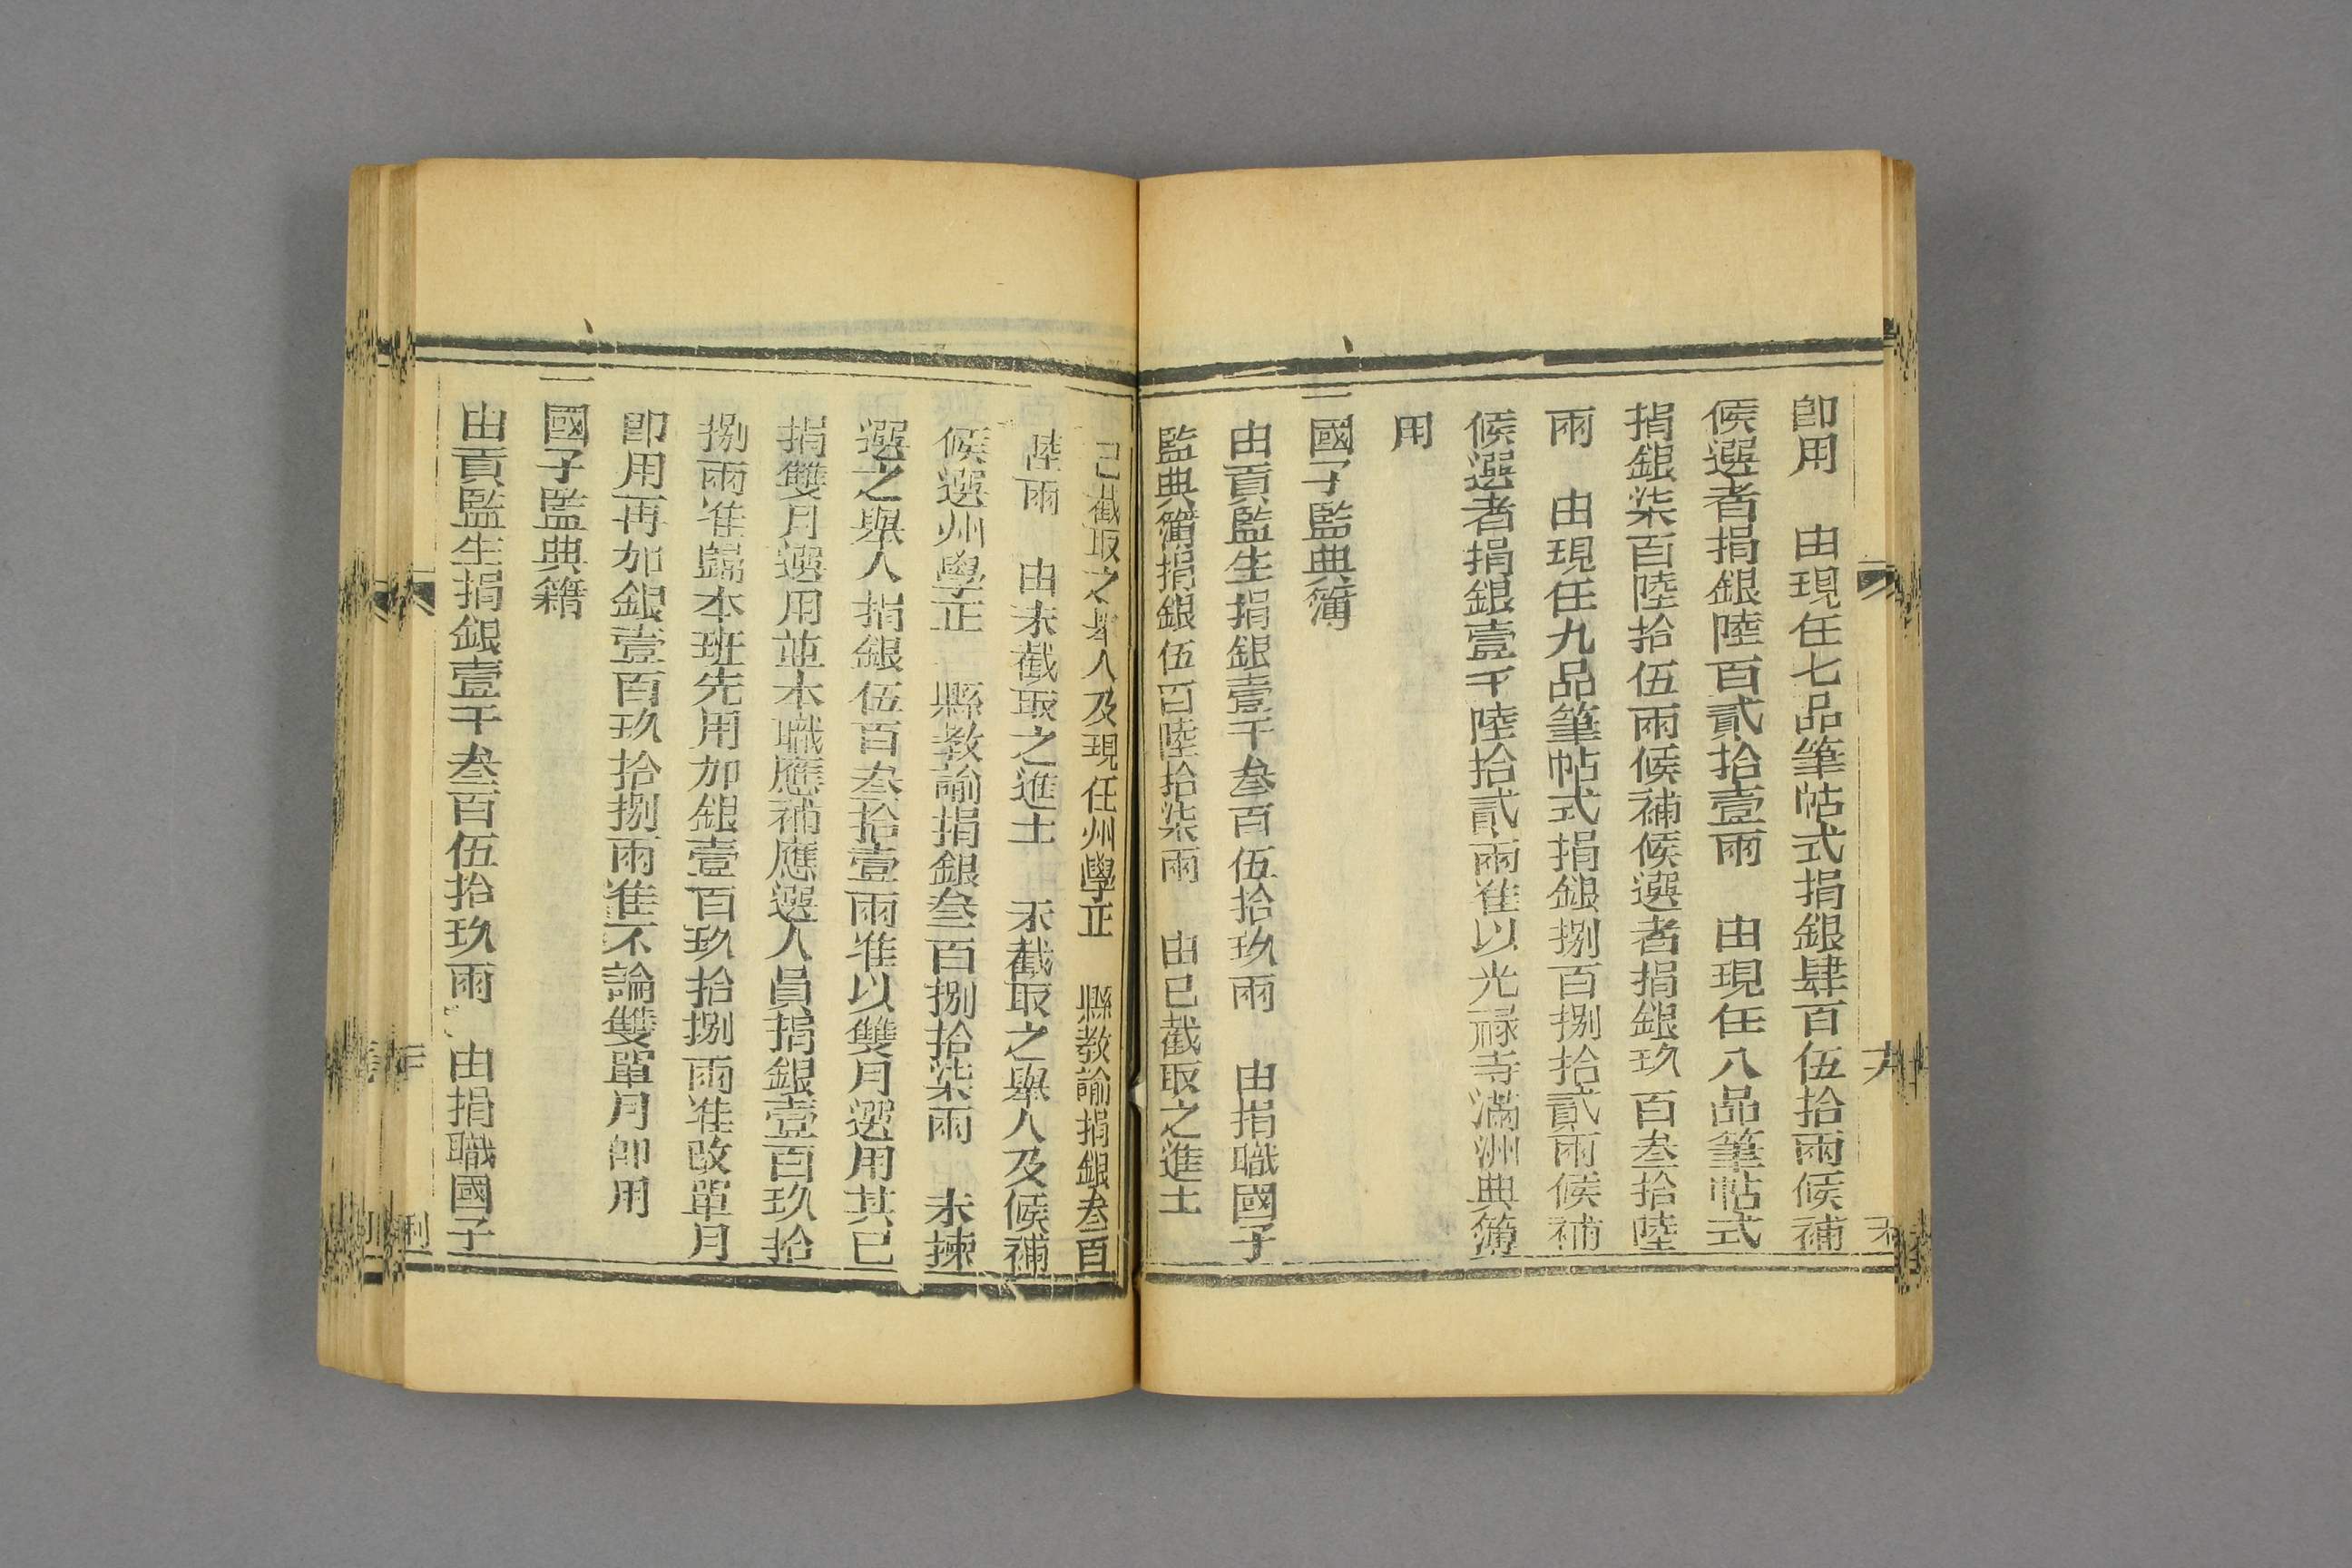 卽用　由現任七品筆帖式捐銀肆百伍拾兩候補
候選者捐銀陸百貳拾壹兩　由現任八品筆帖式
捐銀柒百陸拾伍兩候補候選者捐銀玖百叁拾陸
兩　由現任九品筆帖式捐銀捌百捌拾貳兩候補
候選者捐銀壹千陸拾貳兩准以光祿寺滿洲典簿
用
一國子監典簿
由貢監生捐銀壹千叁百伍拾玖兩　由捐職國子
監典簿捐銀伍百陸拾柒兩　由已截取之進士
已截取之舉人及現任州學正　縣教諭捐銀叁百
陸兩　由未截取之進士　未截取之舉人及候補
候選州學正　縣教諭捐銀叁百捌拾柒兩　未揀
選之舉人捐銀伍百叁拾壹兩准以雙月選用其已
捐雙月選用並本職應補應選人員捐銀壹百玖拾
捌兩准歸本班先用加銀壹百玖拾捌兩准改單月
卽用再加銀壹百玖拾捌兩准不論雙單月卽用
一國子監典籍
由貢監生捐銀壹千叁百伍拾玖兩　由捐職國子